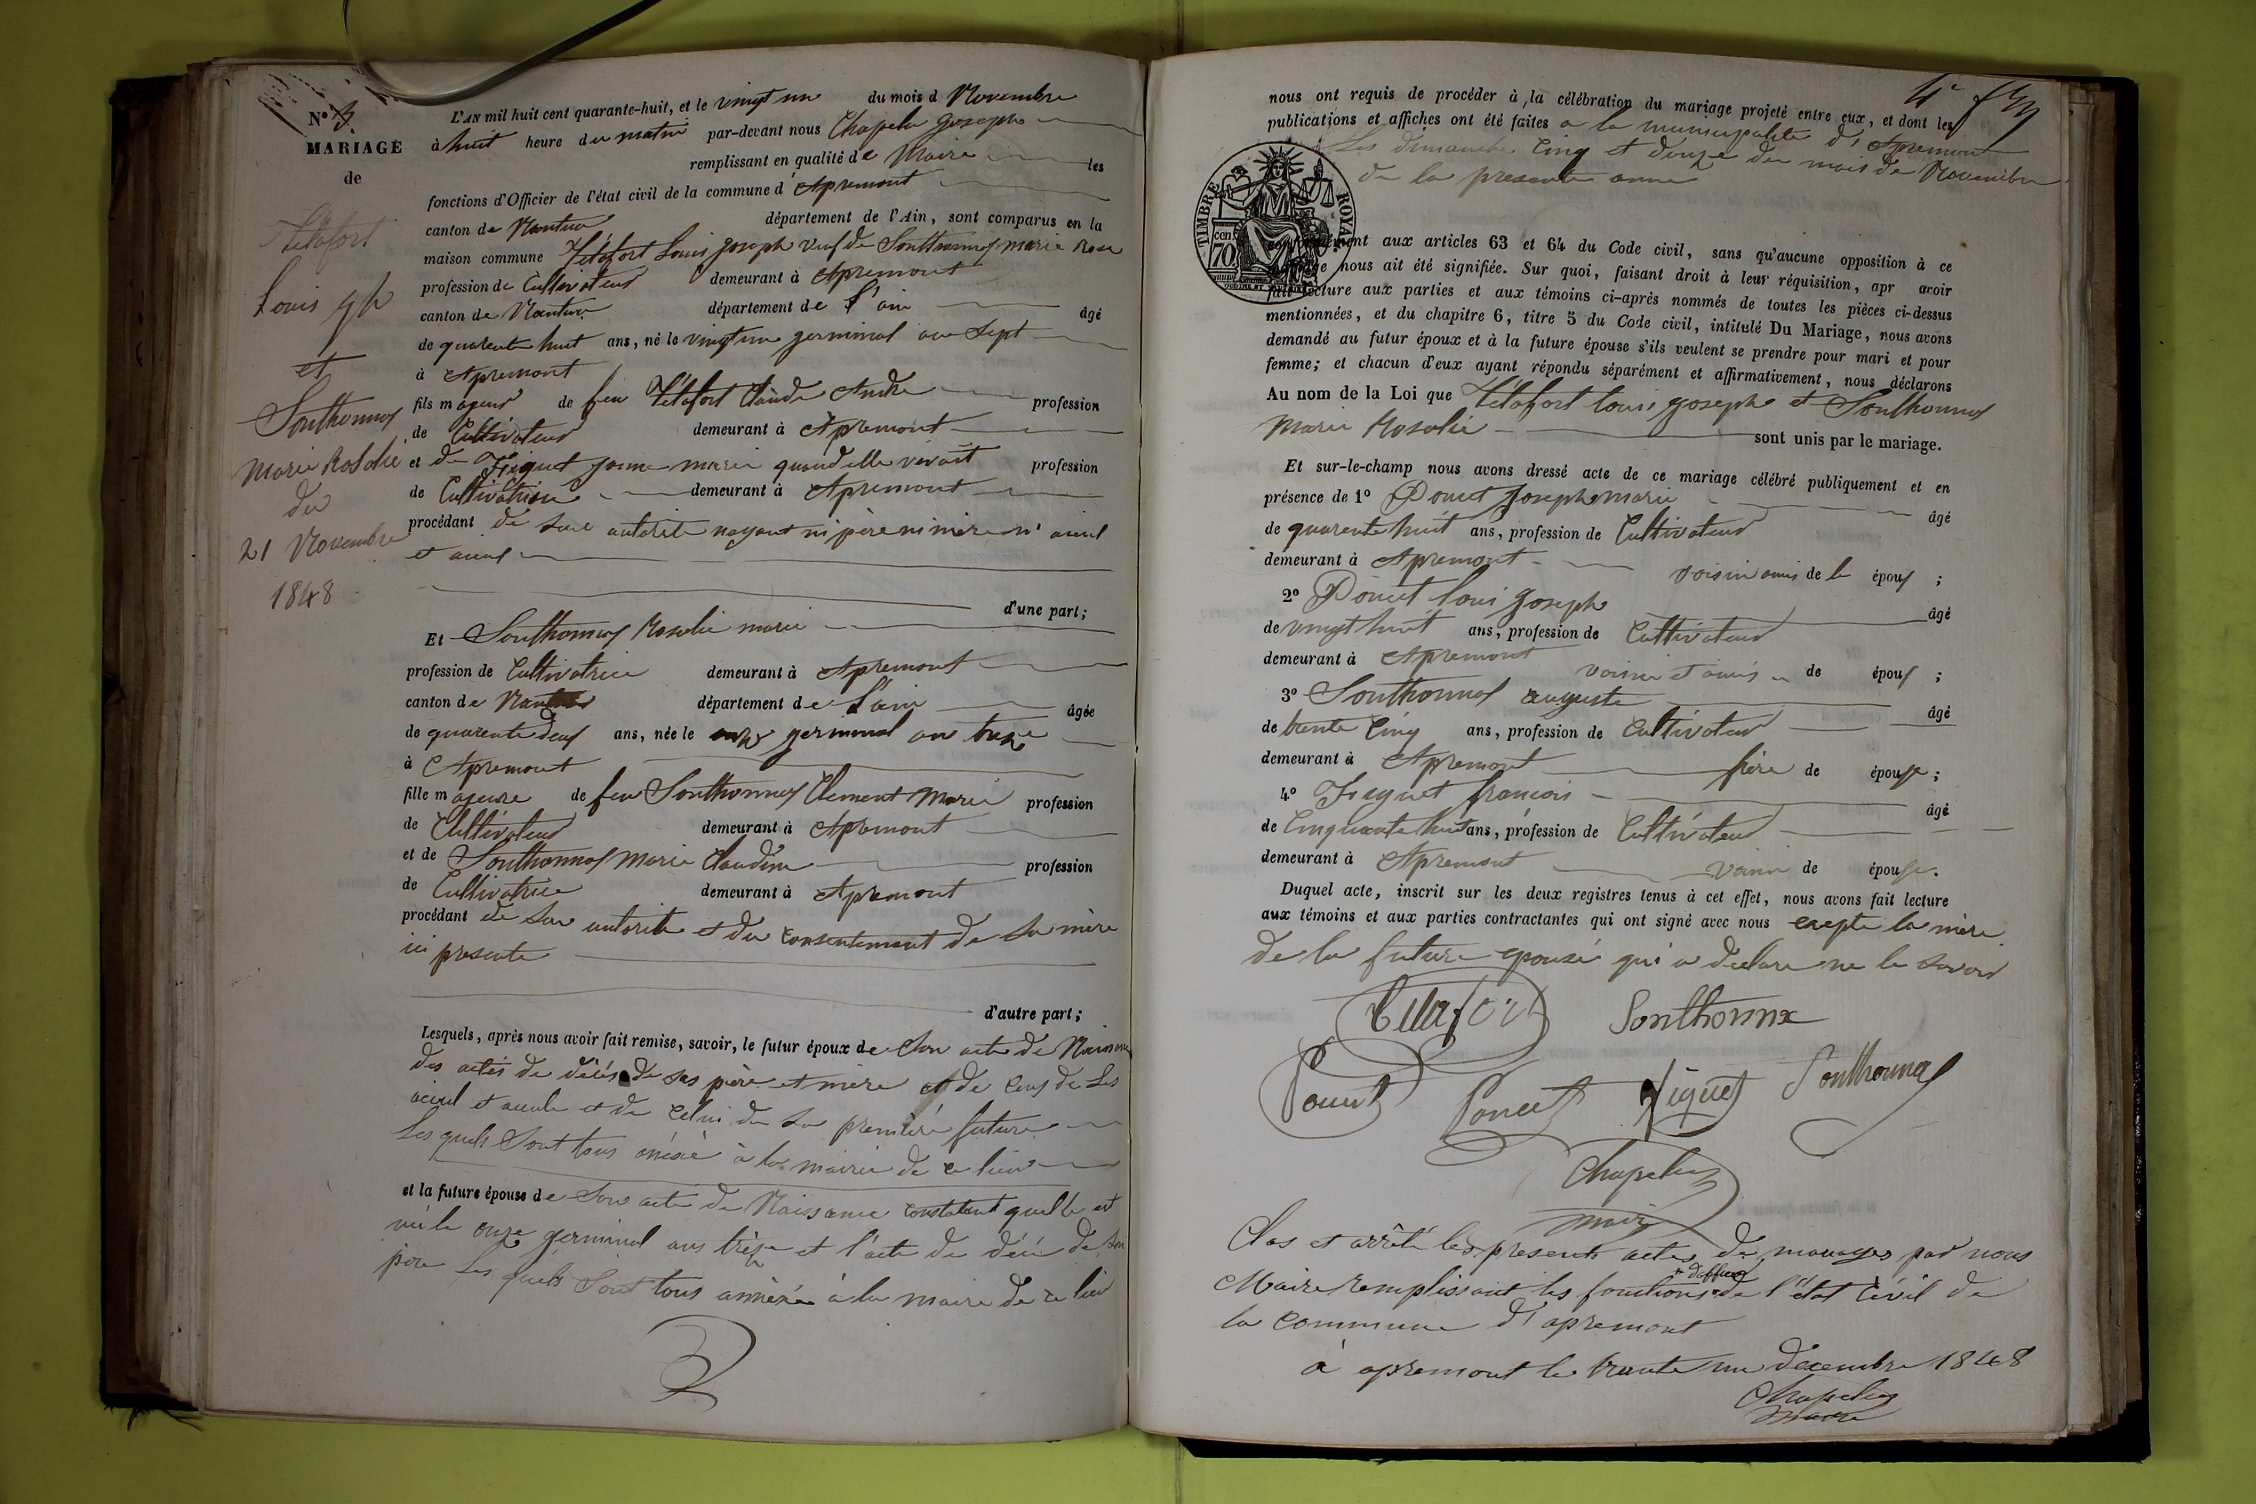 N° 3.
MARIAGE
de
Tétafort
Louis jph
et
Sonthonnax
Marie Rosalie
du
21 Novembre
1848
L'AN mil huit cent quarante-huit, et le vingt un du mois d Novembre
à huit heure du matin par-devant nous Chapelu Joseph
remplissant en qualité de Maire les
fonctions d'Officier de l'état civil de la commune d'Apremont
canton de Nantua département de l'Ain, sont comparus en la
maison commune Tétafort Louis Joseph veuf de Sonthonnax marie Rose
profession de Cultivateur demeurant à Apremont
canton de Nantua département de l'ain âgé
de quarente huit ans, né le vingt un germinal an Sept
à Apremont
fils majeur de feu Tétafort Claude André profession
de Cultivateur demeurant à Apremont
et de Figuet Jeanne marie quand elle vivait profession
de Cultivatrice demeurant à Apremont
procédant de sa autorité nayant ni père ni mère ni aieul
et aieul
d'une part;
Et Sonthonnax Rosalie marie
profession de Cultivatrice demeurant à Apremont
canton de Nantua département de L'ain âgée
de quarente deux ans, née le onze germinal an treize
à Apremont
fille majeure de feu Sonthonnax Clement Marie profession
de Cultivateur demeurant à Apremont
et de Sonthonnax Marie Claudine profession
de Cultivatrice demeurant à Apremont
procédant de son autorité et du consentement de sa mère
ici presente
d'autre part;
Lesquels, après nous avoir fait remise, savoir, le futur époux de Son acte de Naissance
des actes de décés de ses père et mère et de ceux de Ses
aieul et aieule et de celui de sa première future
Les quels Sont tous à la mairie de ce lieu
et la future épouse de Son acte de Naissance constatant quelle est
née le onze germinal ans trèze et l'acte de décé de son
père Les quels Sont tous annèxée à la maire de ce lieu
4e
nous ont requis de procéder à la célébration du mariage projeté entre eux, et dont les
publications et affiches ont été faites a la municipalité d'Apremont
Les dimanche Cinq et douze du mois de Novembre
de la presente anne
TIMBRE ROYAL
70 cen
conformément aux articles 63 et 64 du Code civil, sans qu'aucune opposition à ce
mariage nous ait été signifiée. Sur quoi, faisant droit à leur réquisition, apr avoir
fait lecture aux parties et aux témoins ci-après nommés de toutes les pièces ci-dessus
mentionnées, et du chapitre 6, titre 5 du Code civil, intitulé Du Mariage, nous avons
demandé au futur époux et à la future épouse s'ils veulent se prendre pour mari et pour
femme; et chacun d'eux ayant répondu séparément et affirmativement, nous déclarons
Au nom de la Loi que Tétafort louis joseph et Sonthonnax
Marie Rosalie sont unis par le mariage.
Et sur-le-champ nous avons dressé acte de ce mariage célébré publiquement et en
présence de 1° Poncet Joseph marie âgé
de quarente huit ans, profession de Cultivateur
demeurant à Apremont voisin amis de l époux ;
2° Poncet Loui Joseph âgé
de vingt huit ans, profession de Cultivateur
demeurant à Apremont voisin et amis de époux ;
3° Sonthonnax auguste âgé
de trente Cinq ans, profession de Cultivateur
demeurant à Apremont frère de épouse ;
4° Figuet francois âgé
de Cinquante huit ans, profession de Cultivateur
demeurant à Apremont voisin de épouse.
Duquel acte, inscrit sur les deux registres tenus à cet effet, nous avons fait lecture
aux témoins et aux parties contractantes qui ont signé avec nous excepte la mère
de la future epouse qui a declare ne le savoir
Tetafort Sonthonnax
Poncet Poncet Figuet Sonthonnax
Chapelu
maire
Clos et arrêté les presents actes de mariages par nous
Maire remplissant les fonctions + d'officier de l'état Civil de
la commune d'apremont
à apremont le trente un decembre 1848
Chapelu
maire